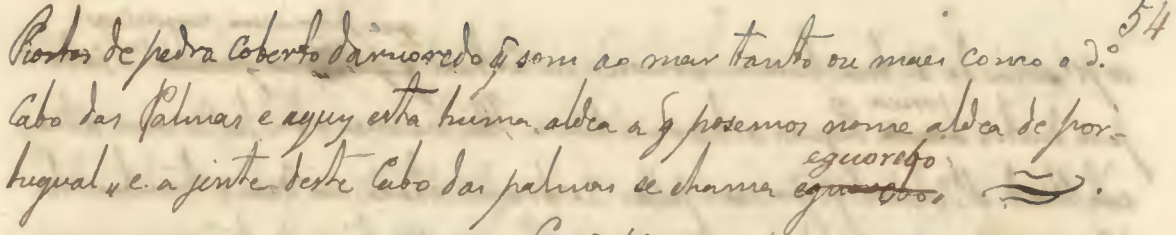 54
Pontas de pedra Coberto daruoredo q̃ som ao mar tanto ou mais como o d.º
Cabo das Palmas e aquy esta huma aldea a q̃ posemos nome aldea de por-
tugual, e a jente deste Cabo das palmas se chama eguorebo